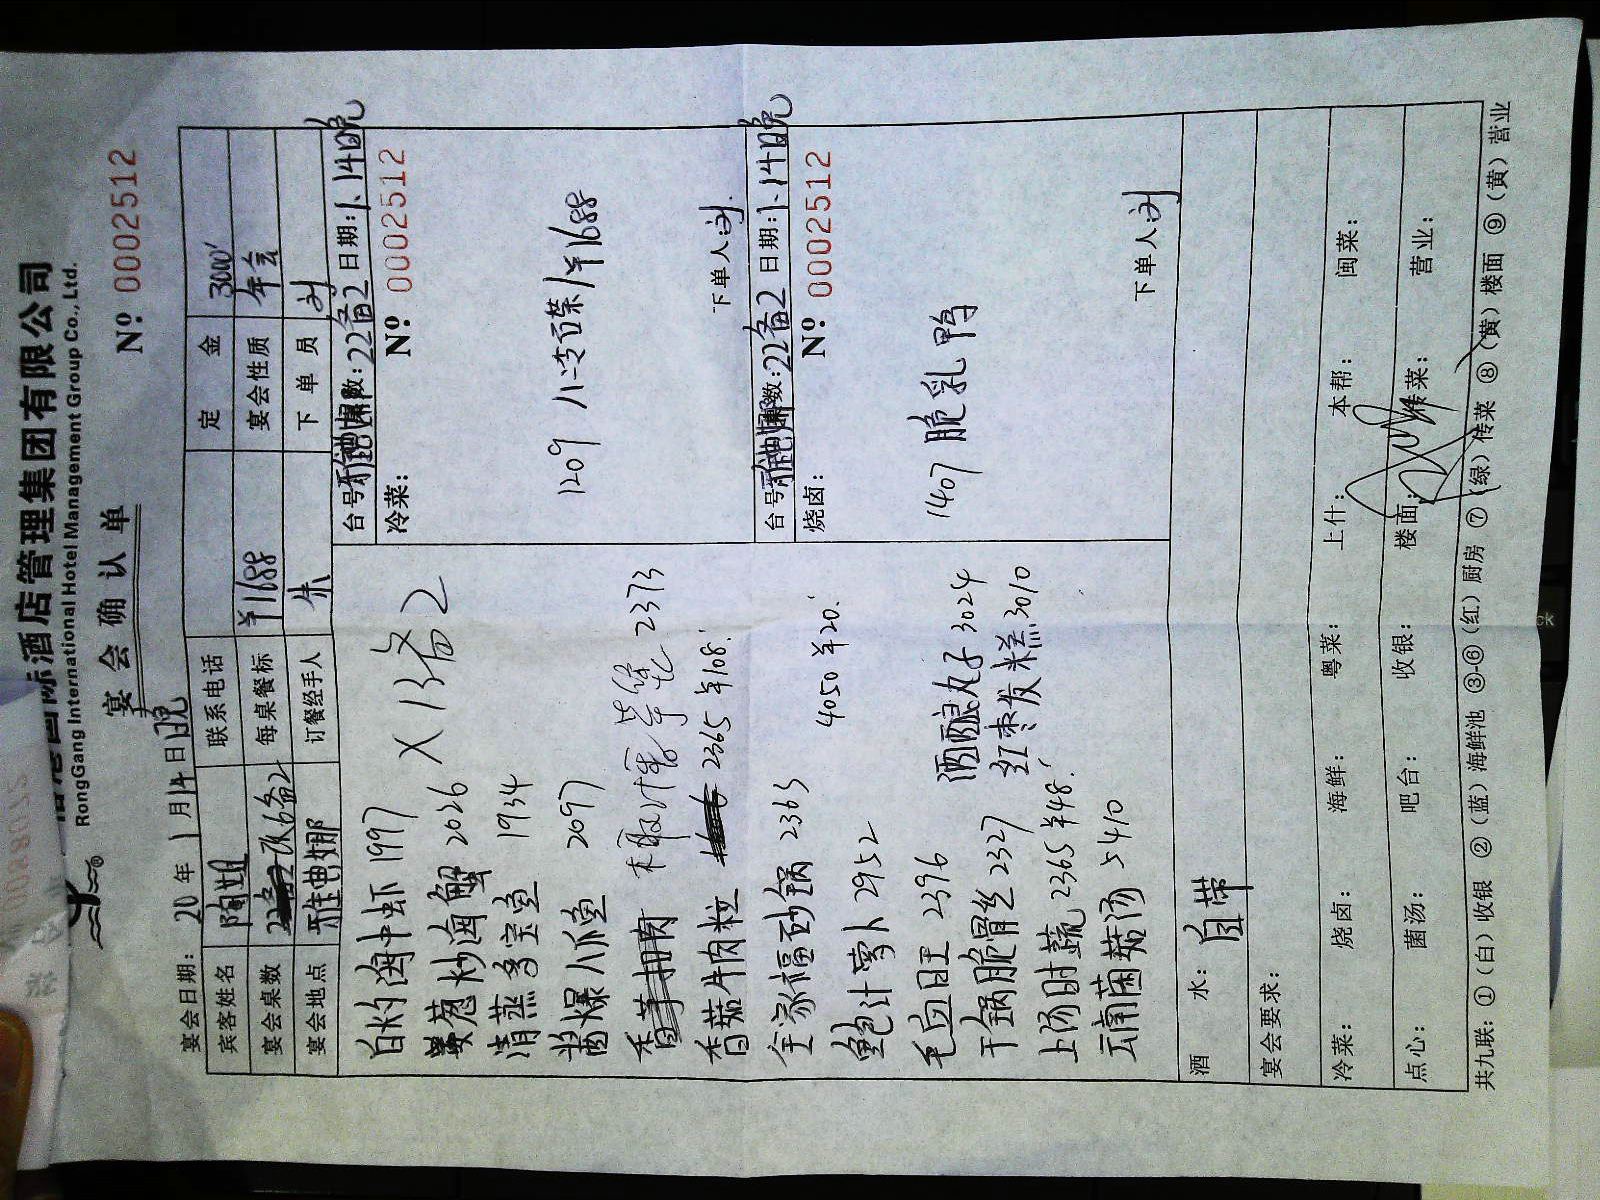 国际酒店管理集团有限公司
RongGang International Hotel Management Group Co., Ltd.
宴会确认单
Nº 0002512
宴会日期: 20 年 1 月 14 日晚
宾客姓名 陶姐 联系电话 定金 3000
宴会桌数 备2 每桌餐标 ¥1688 宴会性质 年会
宴会地点 雅典娜 订餐经手人 朱 下单员 刘
白灼海中虾 1997
葱炒海蟹 2026
清蒸多宝鱼 1934
酱爆八爪鱼 2097
2373
香菇牛肉粒 2365 ¥108
全家福砂锅 2363
4050 ¥20
鲍汁萝卜 2952
毛血旺 2396
酒酿丸子 3024
干锅脆骨丝 2327
红枣发糕 3010
上汤时蔬 2365 ¥48
云南菌菇汤 5410
台号 桌数: 22备2 日期: 1.14晚
冷菜: Nº 0002512
1209 八冷百荣/¥1688
下单人: 刘
台号 桌数: 22备2 日期: 1.14晚
烧卤: Nº 0002512
1407 脆乳鸭
下单人: 刘
酒水: 自带
宴会要求:
冷菜: 烧卤: 海鲜: 粤菜: 上什: 本帮: 闽菜:
点心: 菌汤: 吧台: 收银: 楼面: 传菜: 营业:
共九联: ①(白)收银 ②(蓝)海鲜池 ③-⑥(红)厨房 ⑦(绿)传菜 ⑧(黄)楼面 ⑨(黄)营业